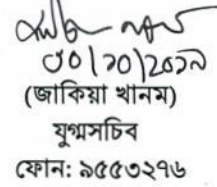 ৩০/১০/২০১৯
(জাকিয়া খানম)
যুগ্মসচিব
ফোন: ৯৫৫৩২৭৬